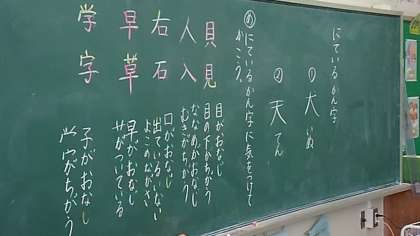 にているかん字
① 犬 いぬ
② 天 てん
め にているかん字に気をつけて
かこう。
貝 見
目がおなじ
目の下がちがう
人 入
ななめがおなじ
むきがちがう
右 石
口がおなじ
出ている いない
よこのながさ
早 草
早がおなじ
艹がついている
学 字
子がおなじ
がちがう